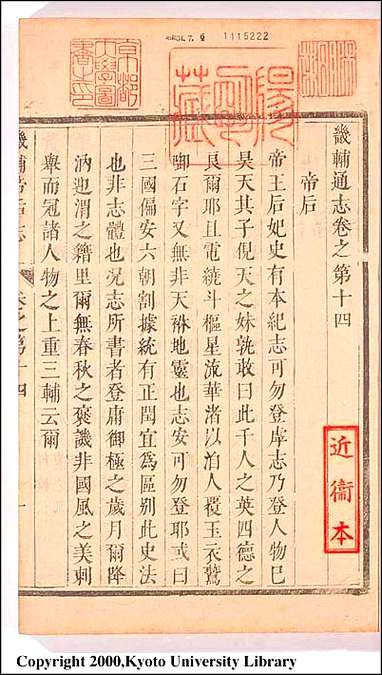 1115222
京都
大學圖
書之印
陽明
藏
近衞本
畿輔通志卷之第十四
帝后
帝王后妃史有本紀志可勿登虖志乃登人物巳
昊天其子俔天之妹孰敢曰此千人之英四德之
良爾耶且電繞斗樞星流華渚以洎人覆玉衣鷟
啣石字又無非天 地靈也志安可勿登耶或曰
三國偏安六朝割據統有正閏宜爲區别此史法
也非志體也况志所書者登庸御極之歲月爾降
汭迎渭之籍里爾無春秋之褒譏非國風之美刺
舉而冠諸人物之上重三輔云爾
畿輔通志
卷之第十四
一
Copyright 2000,Kyoto University Library